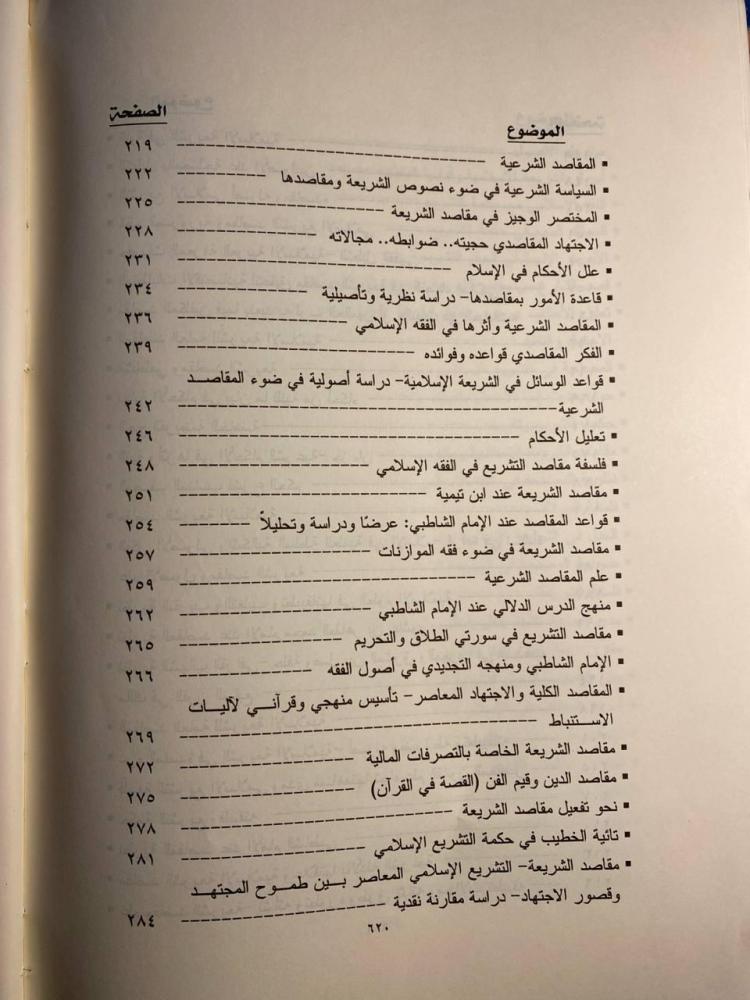 الموضوع الصفحة
▪ المقاصد الشرعية ٢١٩
▪ السياسة الشرعية في ضوء نصوص الشريعة ومقاصدها ٢٢٢
▪ المختصر الوجيز في مقاصد الشريعة ٢٢٥
▪ الاجتهاد المقاصدي حجيته.. ضوابطه.. مجالاته ٢٢٨
▪ علل الأحكام في الإسلام ٢٣١
▪ قاعدة الأمور بمقاصدها- دراسة نظرية وتأصيلية ٢٣٤
▪ المقاصد الشرعية وأثرها في الفقه الإسلامي ٢٣٦
▪ الفكر المقاصدي قواعده وفوائده ٢٣٩
▪ قواعد الوسائل في الشريعة الإسلامية- دراسة أصولية في ضوء المقاصد
الشرعية ٢٤٢
▪ تعليل الأحكام ٢٤٦
▪ فلسفة مقاصد التشريع في الفقه الإسلامي ٢٤٨
▪ مقاصد الشريعة عند ابن تيمية ٢٥١
▪ قواعد المقاصد عند الإمام الشاطبي: عرضًا ودراسة وتحليلاً ٢٥٤
▪ مقاصد الشريعة في ضوء فقه الموازنات ٢٥٧
▪ علم المقاصد الشرعية ٢٥٩
▪ منهج الدرس الدلالي عند الإمام الشاطبي ٢٦٢
▪ مقاصد التشريع في سورتي الطلاق والتحريم ٢٦٥
▪ الإمام الشاطبي ومنهجه التجديدي في أصول الفقه ٢٦٦
▪ المقاصد الكلية والاجتهاد المعاصر- تأسيس منهجي وقرآني لآليات
الاستنباط ٢٦٩
▪ مقاصد الشريعة الخاصة بالتصرفات المالية ٢٧٢
▪ مقاصد الدين وقيم الفن (القصة في القرآن) ٢٧٥
▪ نحو تفعيل مقاصد الشريعة ٢٧٨
▪ تائية الخطيب في حكمة التشريع الإسلامي ٢٨١
▪ مقاصد الشريعة- التشريع الإسلامي المعاصر بين طموح المجتهد
وقصور الاجتهاد- دراسة مقارنة نقدية ٢٨٤
٦٢٠